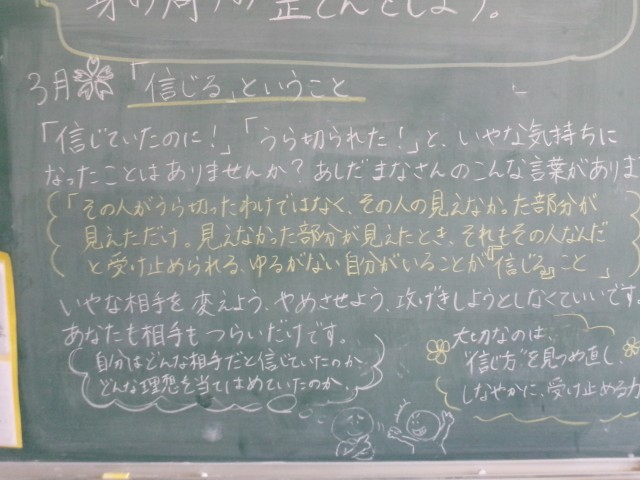 身の周りの整とんをしよう。
3月 「信じる」ということ
「信じていたのに！」「うら切られた！」と、いやな気持ちに
なったことはありませんか？あしだまなさんのこんな言葉がありま
「その人がうら切ったわけではなく、その人の見えなかった部分が
見えただけ。見えなかった部分が見えたとき、それもその人なんだ
と受け止められる、ゆるがない自分がいることが『信じる』こと」
いやな相手を変えよう、やめさせよう、攻げきしようとしなくていいです
あなたも相手もつらいだけです。
自分はどんな相手だと信じていたのか、
どんな理想を当てはめていたのか。
大切なのは、
"信じ方"を見つめ直し、
しなやかに、受け止める力